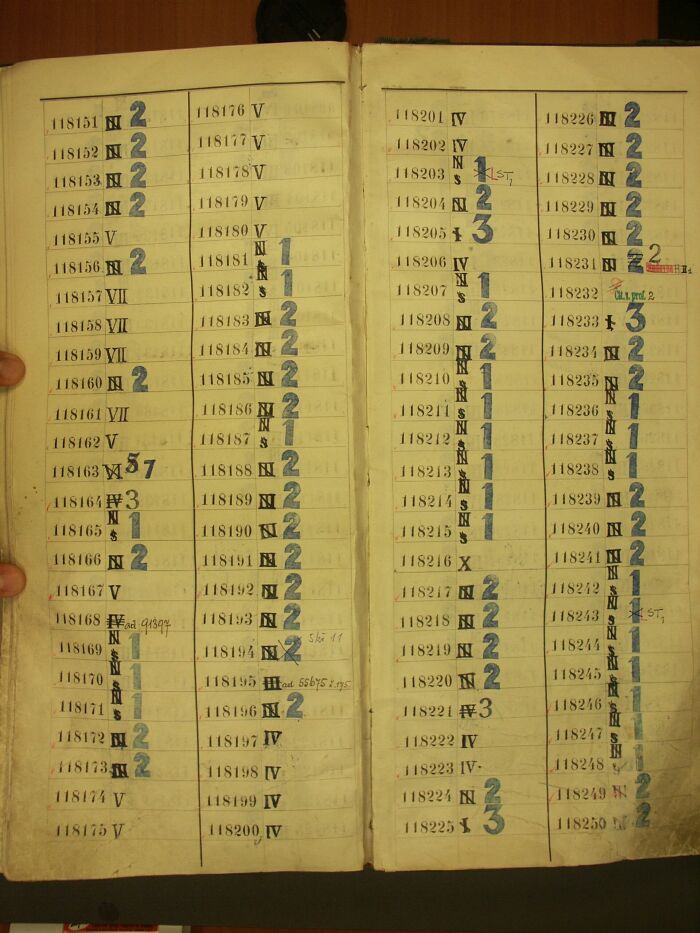 118151 N 2
118152 N 2
118153 N 2
118154 N 2
118155 V
118156 N 2
118157 VII
118158 VII
118159 VII
118160 N 2
118161 VII
118162 V
118163 VI 5 7
118164 IV 3
118165 N s 1
118166 N 2
118167 V
118168 IV ad 91397
118169 N s 1
118170 N s 1
118171 N s 1
118172 N 2
118173 N 2
118174 V
118175 V
118176 V
118177 V
118178 V
118179 V
118180 V
118181 N s 1
118182 N s 1
118183 N 2
118184 N 2
118185 N 2
118186 N 2
118187 N s 1
118188 N 2
118189 N 2
118190 N 2
118191 N 2
118192 N 2
118193 N 2
118194 N 2 Skř 11
118195 III ad 55675
118196 N 2
118197 IV
118198 IV
118199 IV
118200 IV
118201 IV
118202 IV
118203 N s 1 ST,
118204 N 2
118205 I 3
118206 IV
118207 N s 1
118208 N 2
118209 N 2
118210 N s 1
118211 N s 1
118212 N s 1
118213 N s 1
118214 N s 1
118215 N s 1
118216 X
118217 N 2
118218 N 2
118219 N 2
118220 N 2
118221 IV 3
118222 IV
118223 IV.
118224 N 2
118225 I 3
118226 N 2
118227 N 2
118228 N 2
118229 N 2
118230 N 2
118231 N 2 2
118232 Čít. t. prof. 2
118233 I 3
118234 N 2
118235 N 2
118236 N s 1
118237 N s 1
118238 N s 1
118239 N 2
118240 N 2
118241 N 2
118242 N s 1
118243 N s 1 ST,
118244 N s 1
118245 N s 1
118246 N s 1
118247 N s 1
118248 N s 1
118249 N 2
118250 N 2